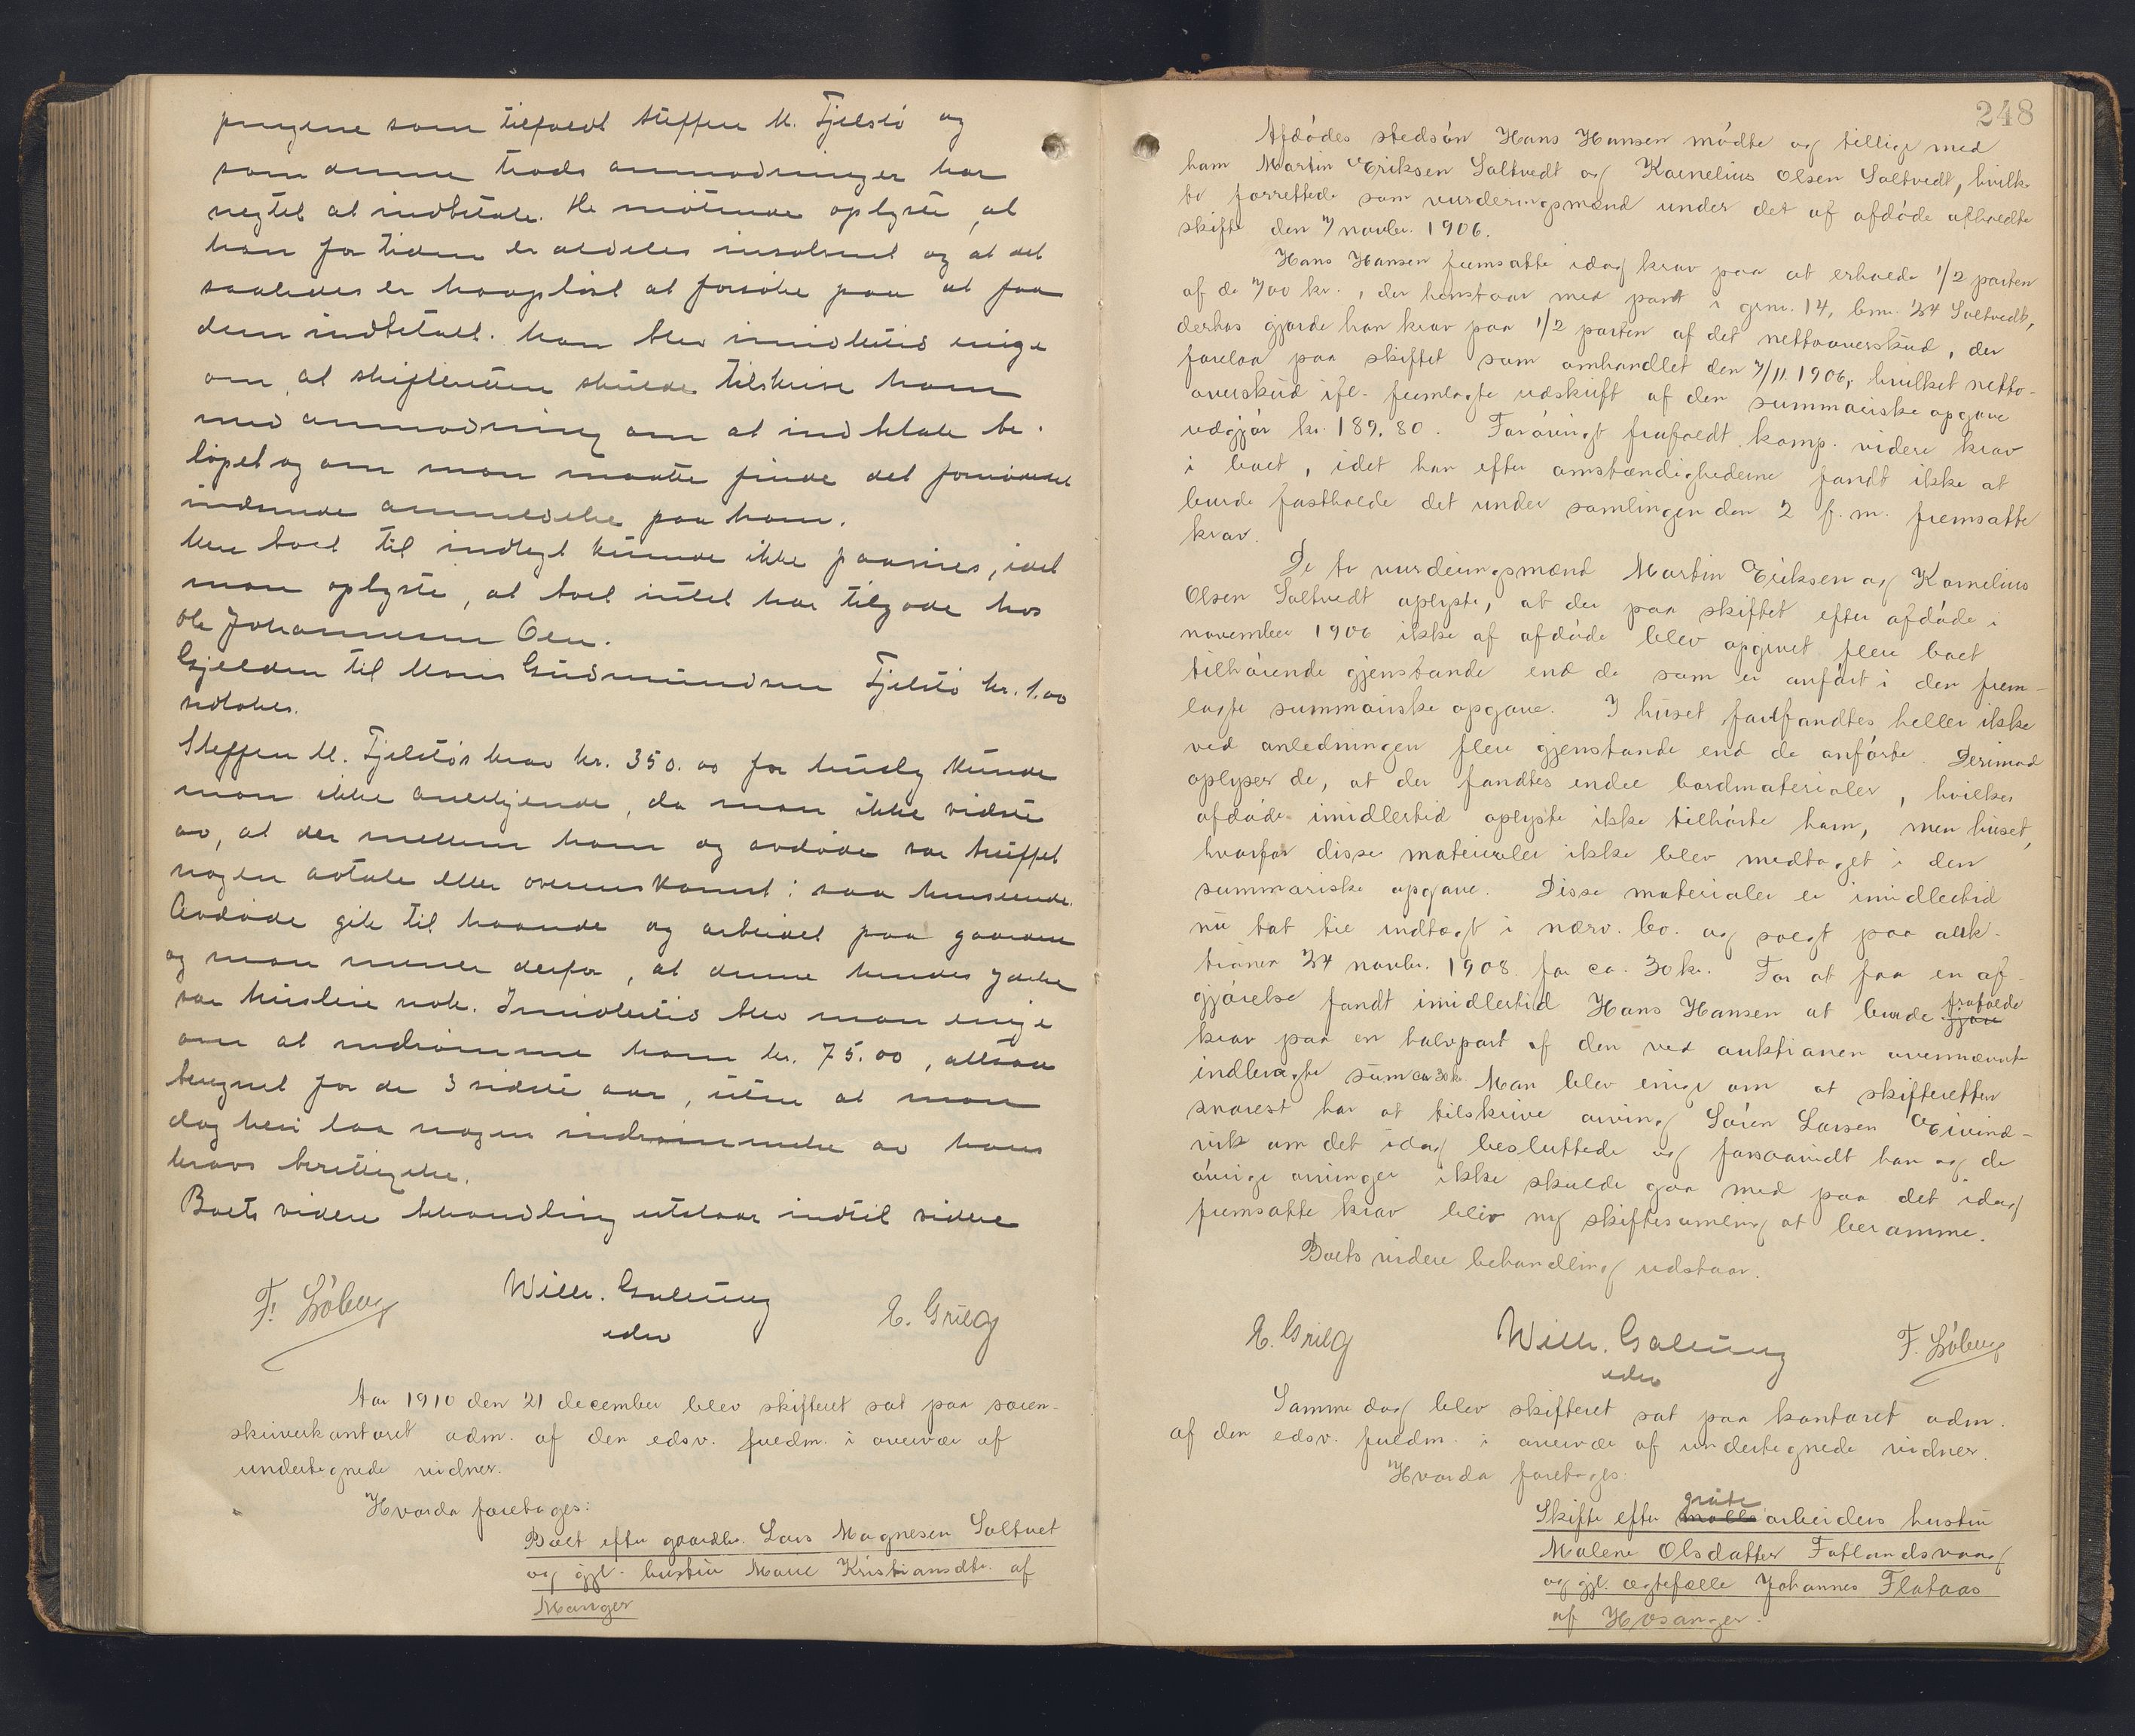 pengene som tilfaldt Steffen M. Fjelstø og
som denne trods anmodninger har
negtet at indbetale. De møtende oplyste, at
han for tiden er aldeles insolvent og at det
saaledes er haapløst at forsøke paa at faa
dem indbetalt. Man blev imidlertid enige
om, at skifteretten skulde tilskrive ham
med anmodning om at indbetale be-
løpet og om man maatte finde det fornødent
indsende anmeldelse paa ham.
Mere boet til indtegt kunde ikke paavises, idet
man oplyste, at boet intet har tilgode hos
Ole Johannessen Øen.
Gjelden til Mons Gudmundsen Fjelstø kr. 1.00
vedtokes.
Steffen M. Fjelstøs krav kr. 350.00 for husly kunde
man ikke anerkjende, da man ikke vidste
av, at der mellem ham og avdøde var truffet
nogen avtale eller overenskomst i saa henseende.
Avdøde gik til haande og arbeidet paa gaarden
og man mener derfor, at denne hendes ydelse
var husleie nok. Imidlertid blev man enige
om at indrømme ham kr. 75.00, altsaa
beregnet for de 3 sidste aar, uten at man
dog heri laa nogen indrømmelse av hans
kravs berettigelse.
Boets videre behandling utstaar indtil videre
F. Söberg Wilh. Gullung E. Grieg
edsv
Aar 1910 den 21 december blev skifteret sat paa soren-
skriverkontoret adm. af den edsv. fuldm. i overvær af
undertegnede vidner.
Hvorda foretages:
Boet efter gaardbr. Lars Magnesen Saltvet
og gjl. hustru Marie Kristiansdtr. af
Manger
248
Afdødes stedsøn Hans Hansen mødte og tillige med
ham Martin Eriksen Saltvedt og Kornelius Olsen Saltvedt, hvilke
to forrettede som vurderingsmænd under det af afdøde afholdte
skifte den 7 novbr. 1906.
Hans Hansen fremsatte idag krav paa at erholde 1/2 parten
af de 700 kr., der henstaar med pant i grn. 14, brn. 24 Saltvedt,
derhos gjorde han krav paa 1/2 parten af det nettooverskud, der
forelaa paa skiftet som omhandlet den 7/11. 1906, hvilket netto-
overskud ifl. fremlagte udskrift af den summariske opgave
udgjør kr. 189,80. Forøvrigt frafaldt komp. videre krav
i boet, idet han efter omstændighederne fandt ikke at
burde fastholde det under samlingen den 2 f.m. fremsatte
krav.
De to vurderingsmænd Martin Eriksen og Kornelius
Olsen Saltvedt oplyste, at der paa skiftet efter afdøde i
november 1906 ikke af afdøde blev opgivet flere boet
tilhørende gjenstande end de som er anført i den frem-
lagte summariske opgave. I huset forefandtes heller ikke
ved anledningen flere gjenstande end de anførte. Derimod
oplyser de, at der fandtes endel bordmaterialer, hvilke
afdøde imidlertid oplyste ikke tilhørte ham, men huset,
hvorfor disse materialer ikke blev medtaget i den
summariske opgave. Disse materialer er imidlertid
nu tat til indtægt i nærv. bo. og solgt paa auk-
tionen 24 novbr. 1908 for ca. 30 kr. For at faa en af-
gjørelse fandt imidlertid Hans Hansen at burde frafalde
krav paa en halvpart af den ved auktionen ovennævnte
indbragte sum ca 30 kr. Man blev enige om at skifteretten
snarest har at tilskrive arving Søren Larsen Eivind-
vik om det idag besluttede og forsaavidt han og de
øvrige arvinger ikke skulde gaa med paa det idag
fremsatte krav blir ny skiftesamling at beramme.
Boets videre behandling udstaar.
E. Grieg Wilh. Gullung F. Söberg
edsv
Samme dag blev skifteret sat paa kontoret adm.
af den edsv. fuldm. i overvær af undertegnede vidner.
Hvorda foretages:
Skifte efter grubearbeiders hustru
Malene Olsdatter Fatlandsvaag
og gjl. ægtefælle Johannes Flataas
af Hosanger.